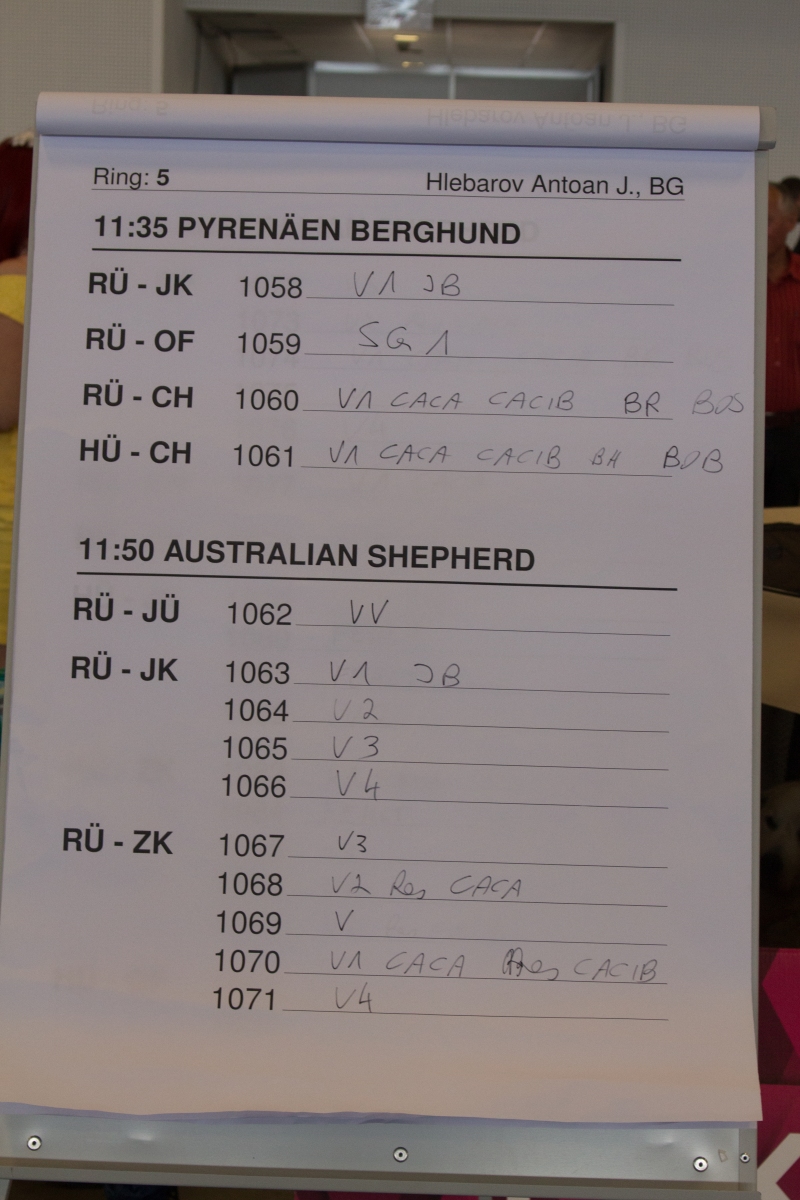 Ring: 5 Hlebarov Antoan J., BG
11:35 PYRENÄEN BERGHUND
RÜ - JK 1058 V1 JB
RÜ - OF 1059 SG 1
RÜ - CH 1060 V1 CACA CACIB BR BOS
HÜ - CH 1061 V1 CACA CACIB BH BOB
11:50 AUSTRALIAN SHEPHERD
RÜ - JÜ 1062 VV
RÜ - JK 1063 V1 JB
1064 V2
1065 V3
1066 V4
RÜ - ZK 1067 V3
1068 V2 Res CACA
1069 V
1070 V1 CACA Res CACIB
1071 V4